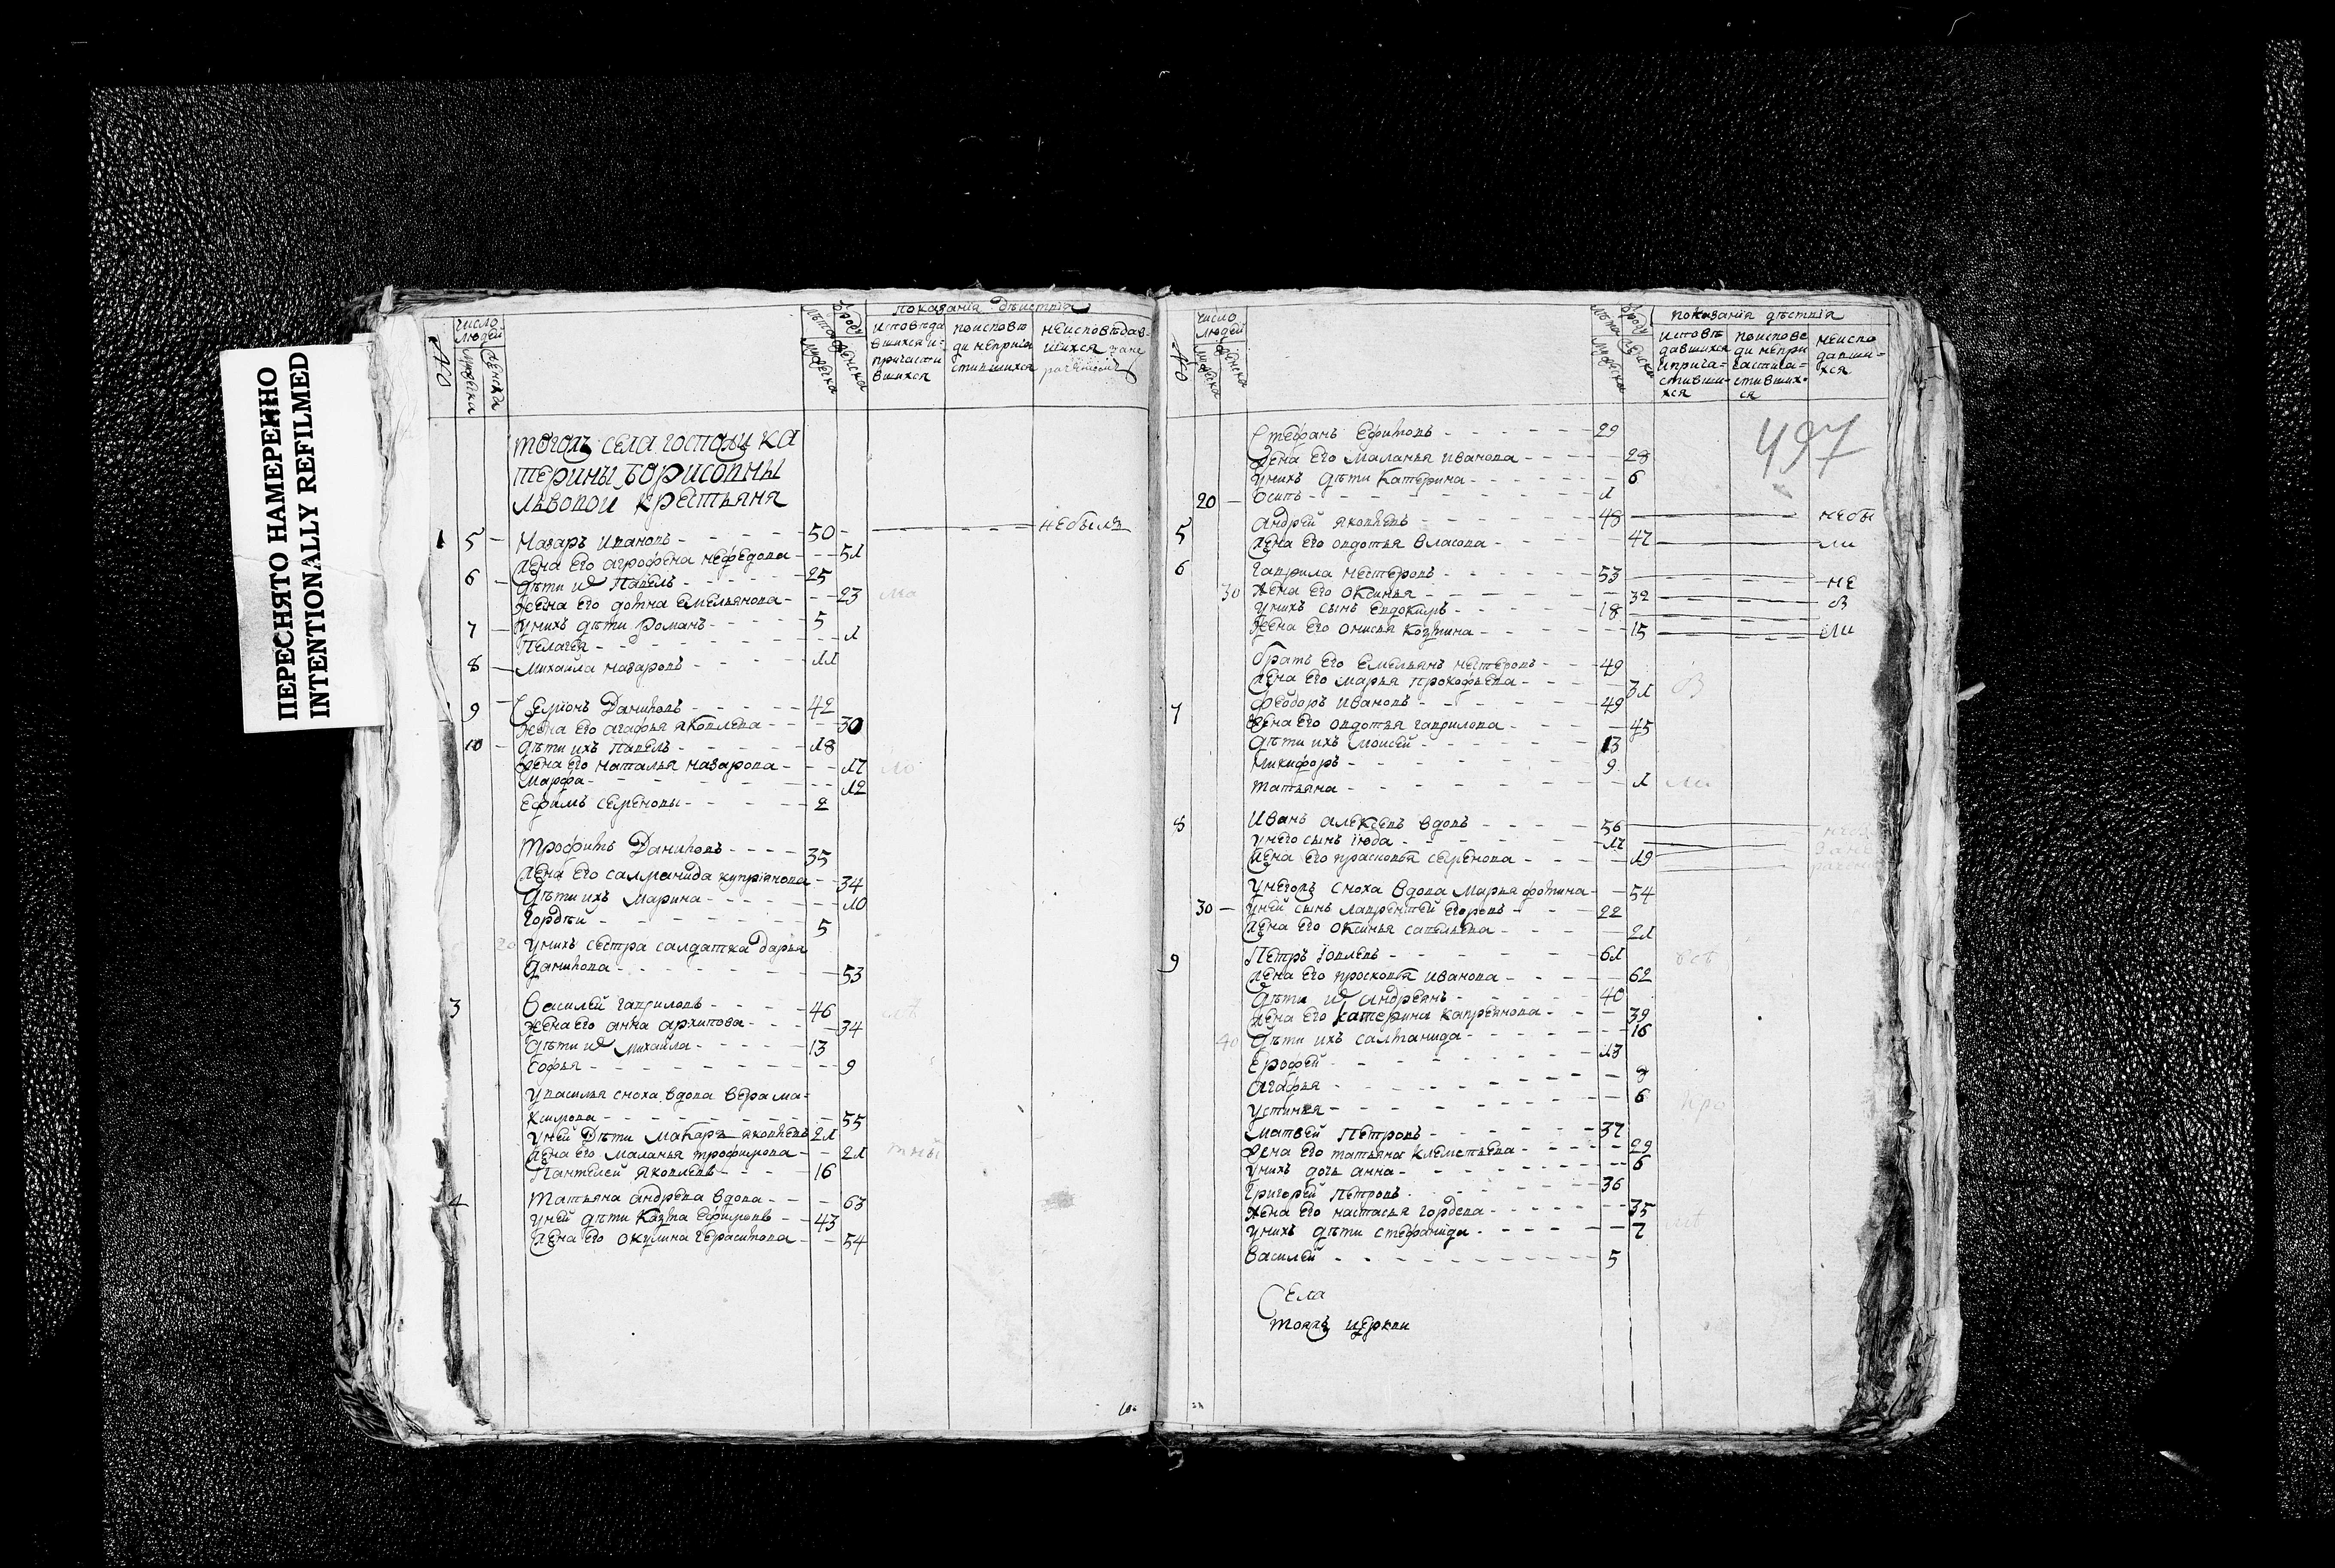 ПЕРЕСНЯТО НАМЕРЕННО
INTENTIONALLY REFILMED
показанїа дѣиствїа
№
число людей
мужеска
женска
лѣта
мужеска
женска
исповѣда вшихся и причасти вшихся
поисповѣ ди непричa стившихся
неисповѣдав шихся
тогожъ села госпожи ка
терины борисовны
львовои крестьяня
1 5 Назаръ Ивановъ 50 небылъ
жена его агрофена нефедова 51
6 дѣти их Павелъ 25
жена его домна емельянова 23
7 унихъ дѣти романъ 5
Пелагея 1
8 михаила назаровъ 11
9 Семіонъ Даниловъ 42
жена его агафья яковлева 30
10 дѣти ихъ павелъ 18
жена его наталья назарова 17
Марфа 12
ефимъ семеновы 2
трофимъ Даниловъ 35
жена его саломанида купріянова 34
дѣти ихъ марина 10
гордѣи 5
унихъ сестра салдатка дарья
данилова 53
3 Василей гавриловъ 46
жена его анна архипова 34
дѣти их михаила 13
софья 9
увасилья сноха вдова вера ма=
ксимова 55
уней дѣти макаръ яковлевъ 21
жена его маланья трофимова 21
Пантелей яковлевъ 16
4 татьяна андрева вдова 63
уней дѣти козма ефимовъ 43
жена его окулина герасимова 54
показанїа дѣствїа
№
число людей
мужеска
женска
лѣта
мужеска
женска
исповѣ давшихся и прича= стивши хся
поиспове ди непри частиа= стивших= ся
неиспо давши= хся
497
Стефанъ ефимовъ 29
жена его маланья иванова 28
унихъ дѣти катерина 6
20 осипъ 1
5 андрей яковлевъ 48 небы
жена его овдотья власова 47 ли
6 гаврила нестеровъ 53 не
30 жена его оксинья 32 б
унихъ сынъ евдокимъ 18
жена его онисья козмина 15 ли
братъ его емельянъ нестеровъ 49
жена его марья прокофьева 31
7 федоръ ивановъ 49
жена его овдотья гаврилова 45
дѣти ихъ моисей 13
никифоръ 9
татьяна 1
8 Иванъ алексѣевъ вдовъ 56
унего сынъ июда 17
жена его прасковья семенова 19
унегожъ сноха вдова марья фомина 54
30 уней сынъ лаврентей егоровъ 22
жена его оксинья савельева 21
9 Петръ иовлевъ 61
жена его просковья иванова 62
дѣти их андреянъ 40
жена его катерина 39
40 дѣти ихъ саломанида 16
ерофей 13
агафья 8
устинья 6
матвей петровъ 37
жена его татьяна клеметьева 29
унихъ дочь анна 6
григорей петровъ 36
жена его настасья гордеева 35
унихъ дѣти стефанида 7
василей 5
Села
тояжъ церкви